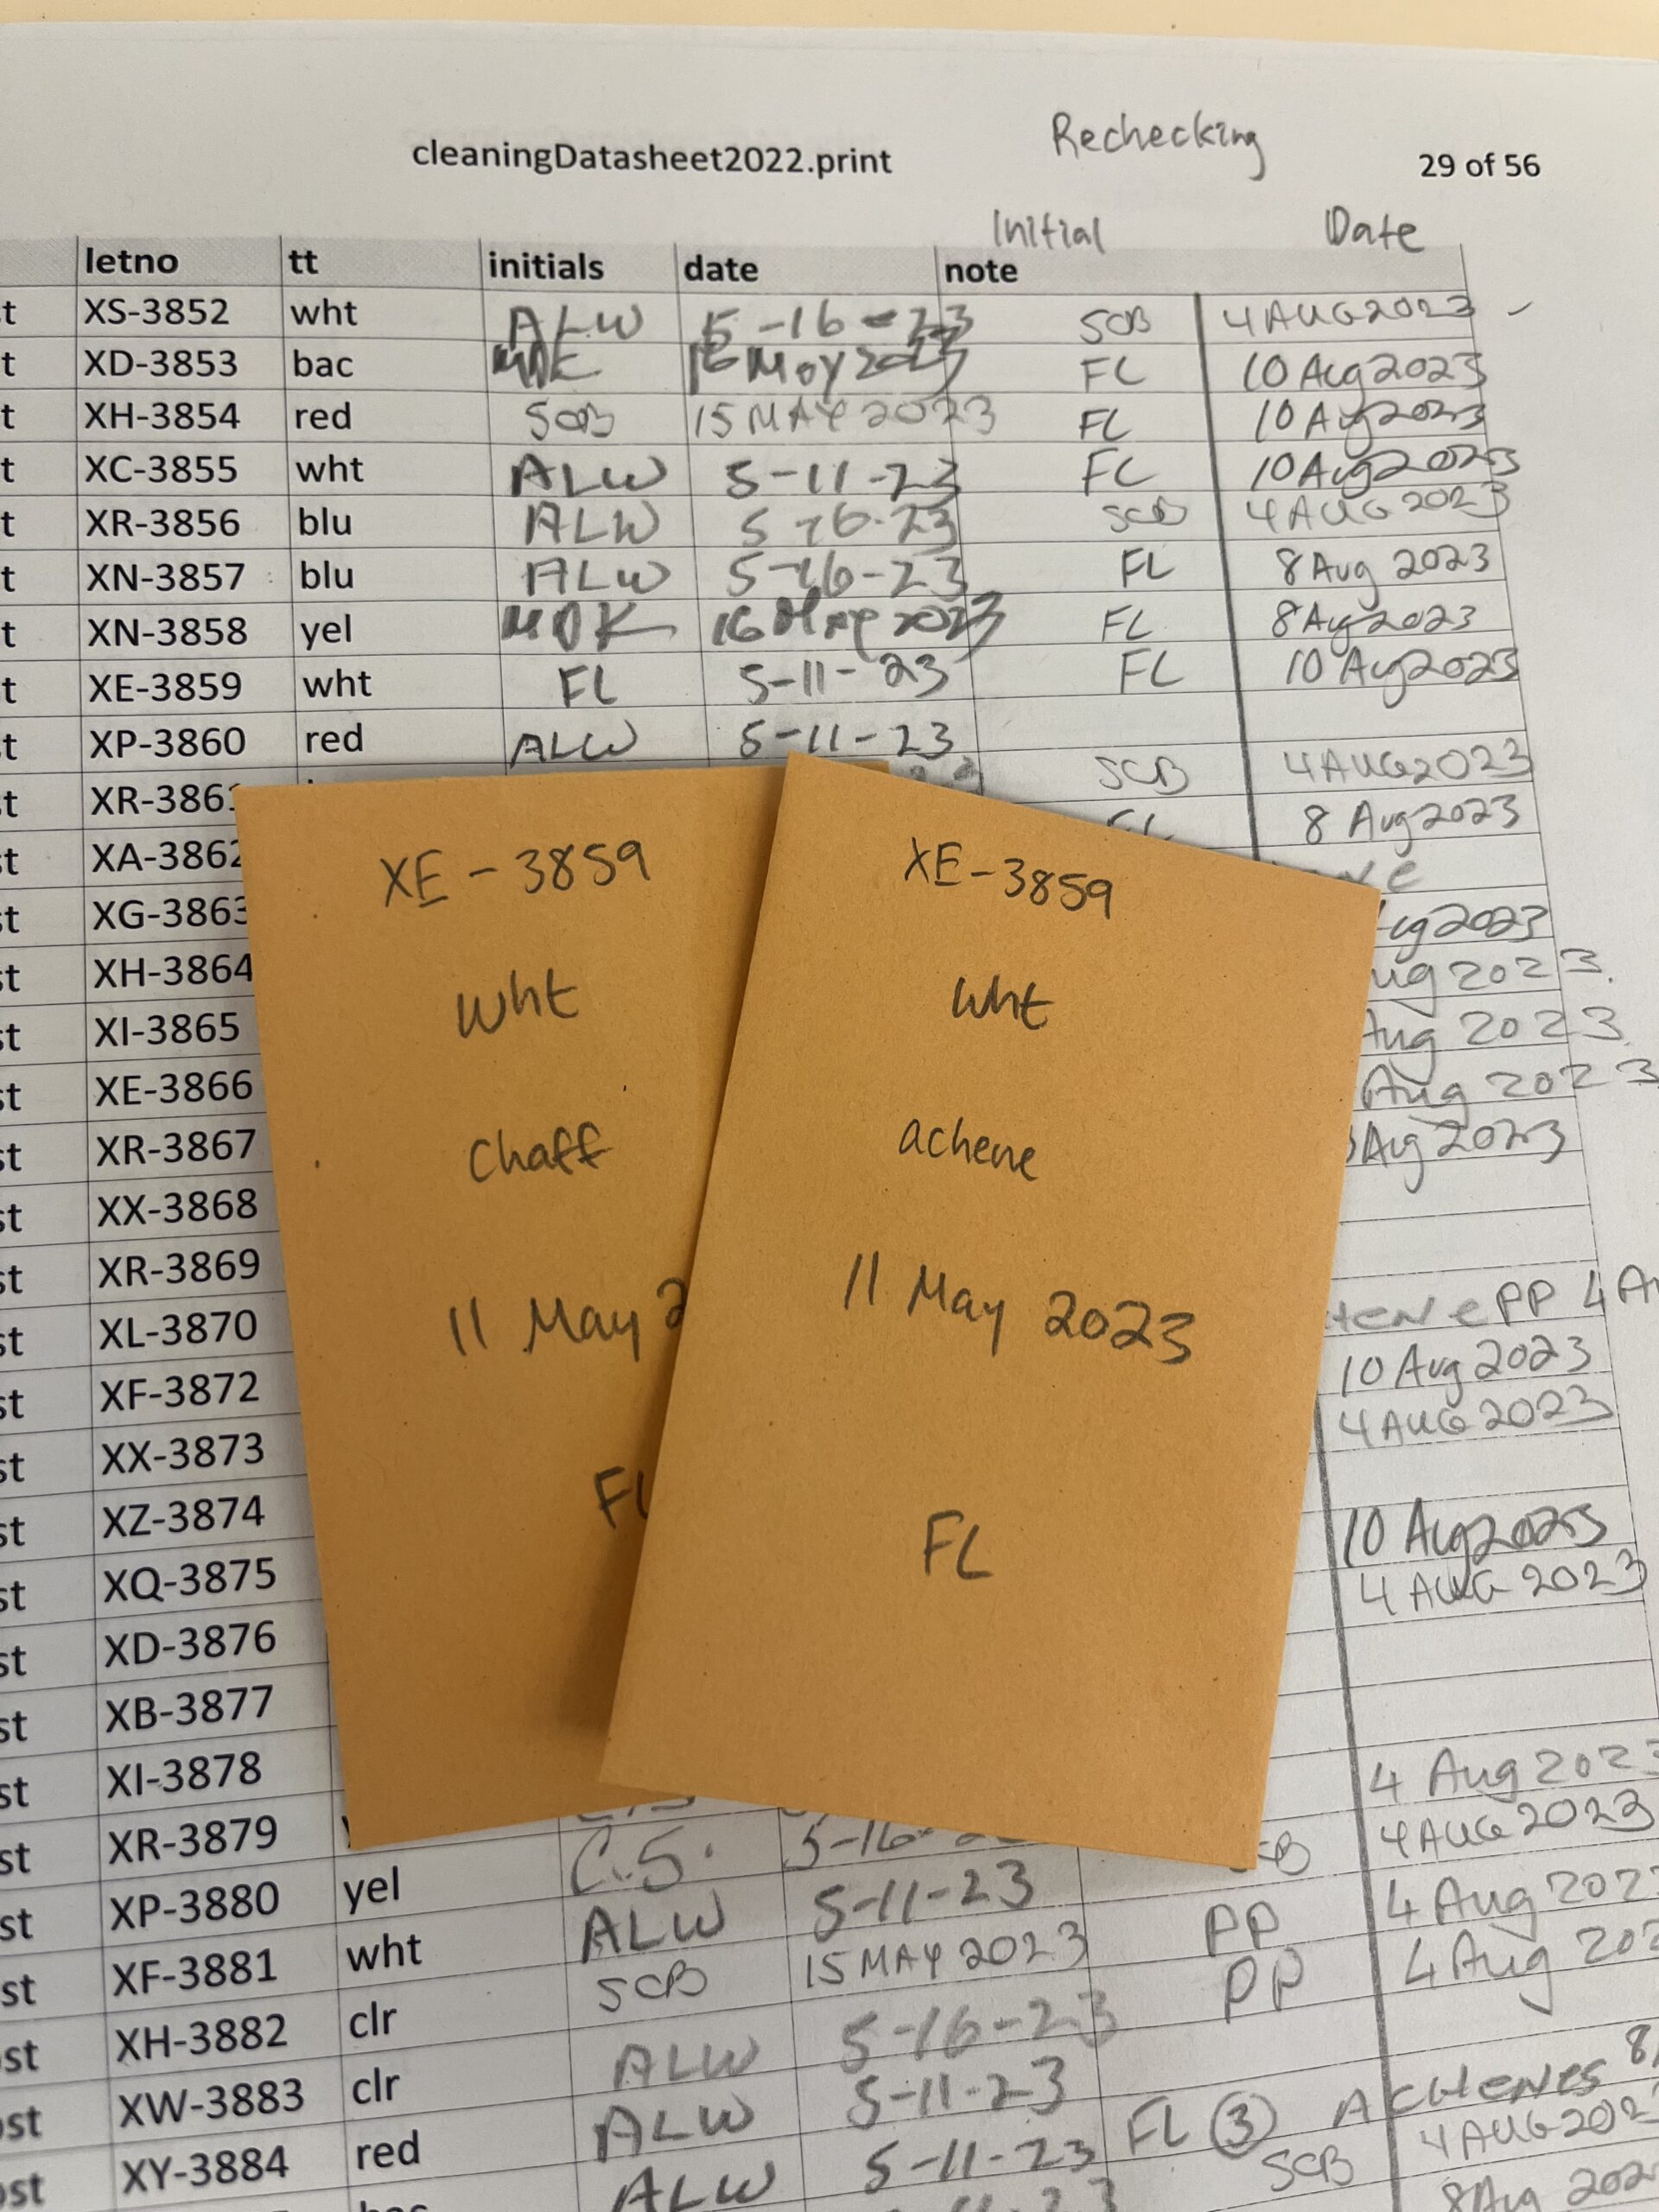 Rechecking
cleaningDatasheet2022.print 29 of 56
Initial Date
letno tt initials date note
t XS-3852 wht ALW 5-16-23 SCB 4 AUG 2023
t XD-3853 bac MDK 16 May 2023 FL 10 Aug 2023
t XH-3854 red SCB 15 MAY 2023 FL 10 Aug 2023
t XC-3855 wht ALW 5-11-23 FL 10 Aug 2023
t XR-3856 blu ALW SCB 4 AUG 2023
t XN-3857 blu ALW 5-16-23 FL 8 Aug 2023
t XN-3858 yel MDK 16 May 2023 FL 8 Aug 2023
t XE-3859 wht FL 5-11-23 FL 10 Aug 2023
st XP-3860 red ALW 5-11-23
st XR-3861 SCB 4 AUG 2023
st XA-3862 FL 8 Aug 2023
st XG-3863 ug 2023
st XH-3864 ug 2023.
st XI-3865 Aug 2023
st XE-3866 Aug 2023
st XR-3867 Aug 2023
st XX-3868
st XR-3869
st XL-3870 HENE PP 4 A
st XF-3872 10 Aug 2023
4 AUG 2023
st XX-3873
st XZ-3874 10 Aug 2023
st XQ-3875 4 AUG 2023
st XD-3876
st XB-3877
st XI-3878 4 Aug 2023
st XR-3879 C.S. 5-16- 4 AUG 2023
st XP-3880 yel ALW 5-11-23 PP 4 Aug 202
st XF-3881 wht SCB 15 MAY 2023 PP 4 Aug 202
st XH-3882 clr ALW 5-16-23
st XW-3883 clr ALW 5-11-23 FL 3 ACHENES 8
st XY-3884 red ALW 5-11-23 SCB 4 AUG 202
8 Aug 202
XE-3859
wht
chaff
11 May 2
FL
XE-3859
wht
achene
11 May 2023
FL